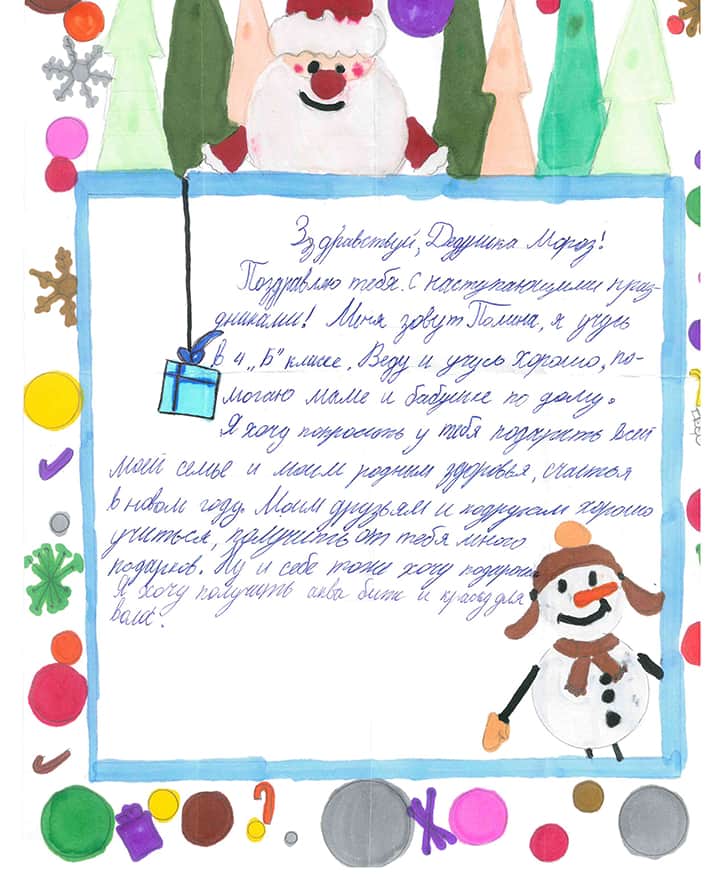 Здравствуй, Дедушка Мороз!
Поздравляю тебя с наступающими праз-
дниками! Меня зовут Полина, я учусь
в 4 „Б" классе. Веду и учусь хорошо, по-
могаю маме и бабушке по дому.
Я хочу попросить у тебя подарить всей
моей семье и моим родным здоровья, счастья
в новом году. Моим друзьям и подругам хорошо
учиться, получить от тебя много
подарков. Ну и себе тоже хочу подарочек
Я хочу получить аква битс и краску для
волос.